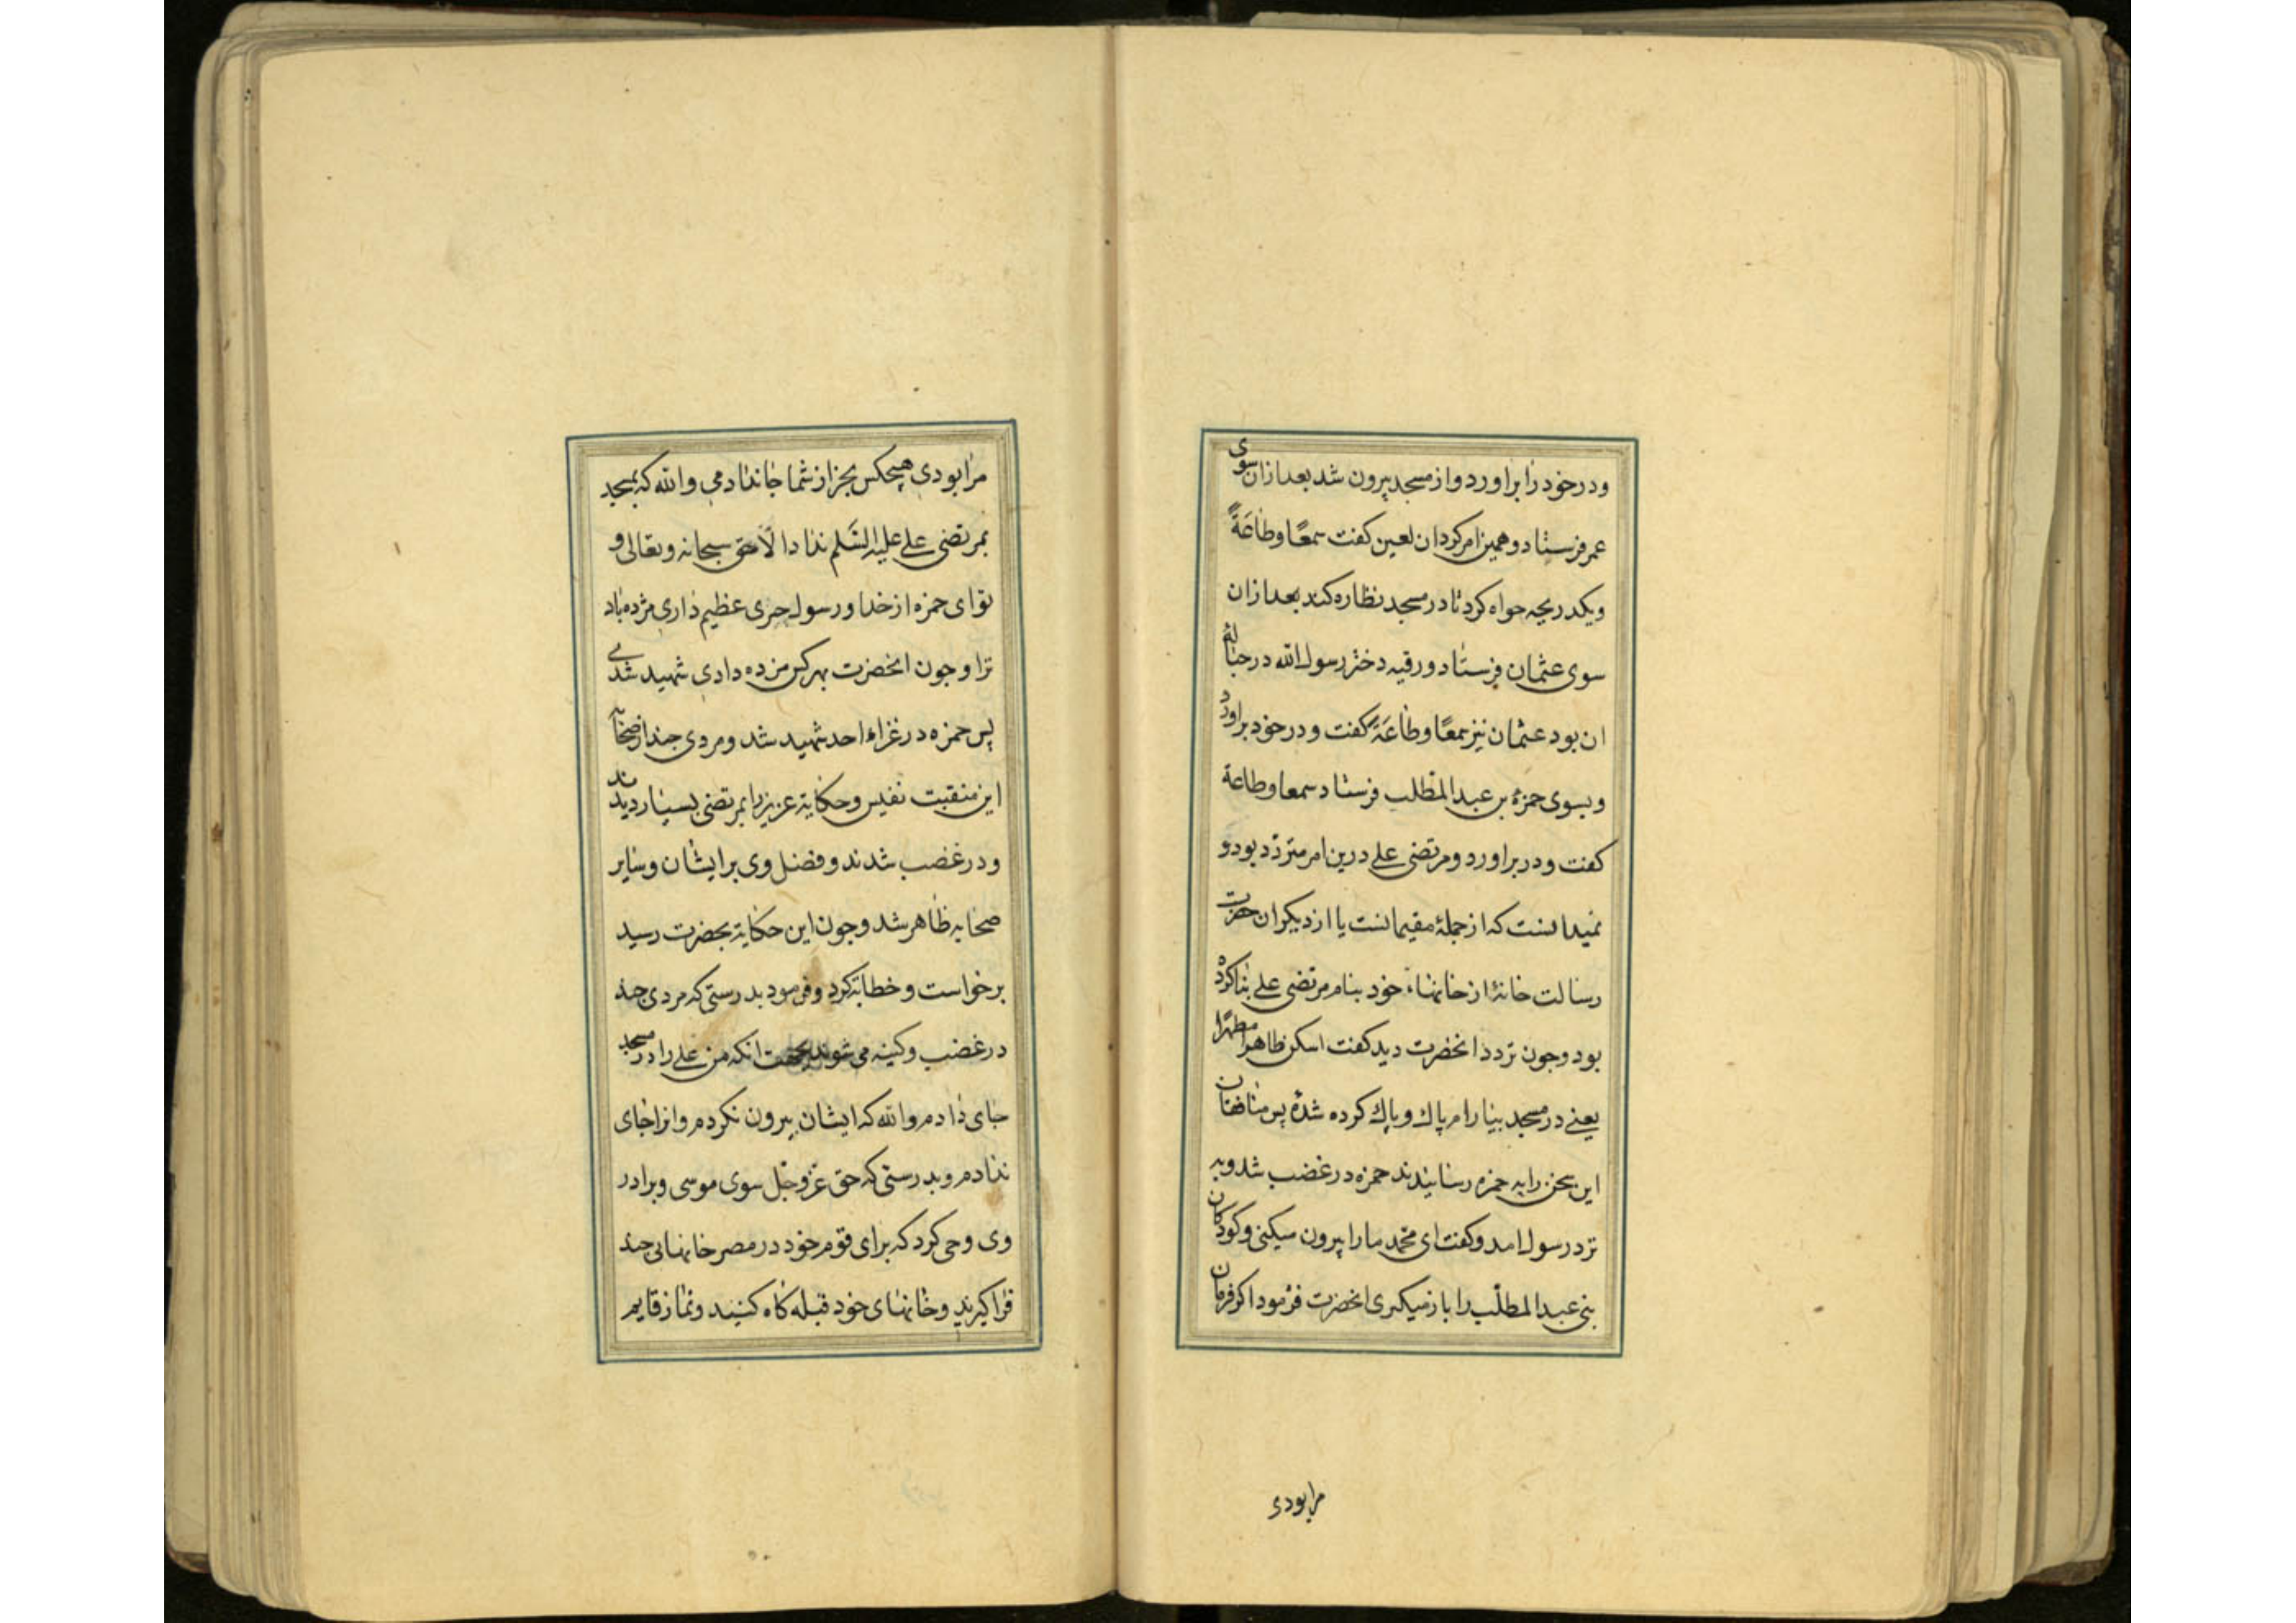 ودر خود را براورد و از مسجد بیرون شد بعد ازان سوی
عمر فرستاد و همین امر کرد ان لعین کفت سمعًا وطاعَةً
ویکدریجه خواه کرد تا در مسجد نظاره کند بعد ازان
سوی عثمان فرستاد ورقیه دختر رسول الله در حباله
ان بود عثمان نیز سمعًا وطاعَةً کفت ودر خود براورد
وبسوی حمزهٔ بن عبد المطلب فرستاد سمعا وطاعة
کفت ودر براورد ومرتضی علی درین امر متردد بود و
نمیدانست که از جملهٔ مقیمانست یا از دیکران حضرت
رسالت خانهٔ از خانهاء خود بنام مرتضی علی بنا کرده
بود وجون تردد انحضرت دید کفت اسکن طاهرا مطهرا
یعنی در مسجد بیارام پاك وپاك کرده شدهٔ پس منافقان
این سخن را به حمزه رسانیدند حمزه در غضب شد وبه
نزد رسول امد وکفت ای محمد ما را بیرون میکنی وکودکان
بنی عبد المطلب را باز میکیری انحضرت فرمود اکر فرمان
مرا بودی
مرا بودی هیچکس بجز از شما جا ندادمی والله که بمسجد
بمرتضی علی علیه السَّلم ندا دا الّا حق سبحانه وتعالی و
تو ای حمزه از خدا ورسول جزی عظیم داری مژده باد
ترا وجون انحضرت بهر کس مژده دادی شهید شدی
پس حمزه در غزاء احد شهید شد ومردی جند از صحابه
این منقبت نفیس وحکایة عزیز را بمرتضی بسیار دیدند
ودر غضب شدند وفضل وی بر ایشان وسایر
صحابه ظاهر شد وجون این حکایة بحضرت رسید
برخواست وخطابة کرد وفرمود بدرستی که مردی جند
در غضب وکینه می شوند بجهت انکه من علی را در مسجد
جای دادم والله که ایشان بیرون نکردم وانرا جای
ندادم وبدرستی که حق عزّ وجلّ سوی موسی وبرادر
وی وحی کرد که برای قوم خود در مصر خانهایی جند
فرا کیرند وخانهای خود قبله کاه کنید ونماز قایم